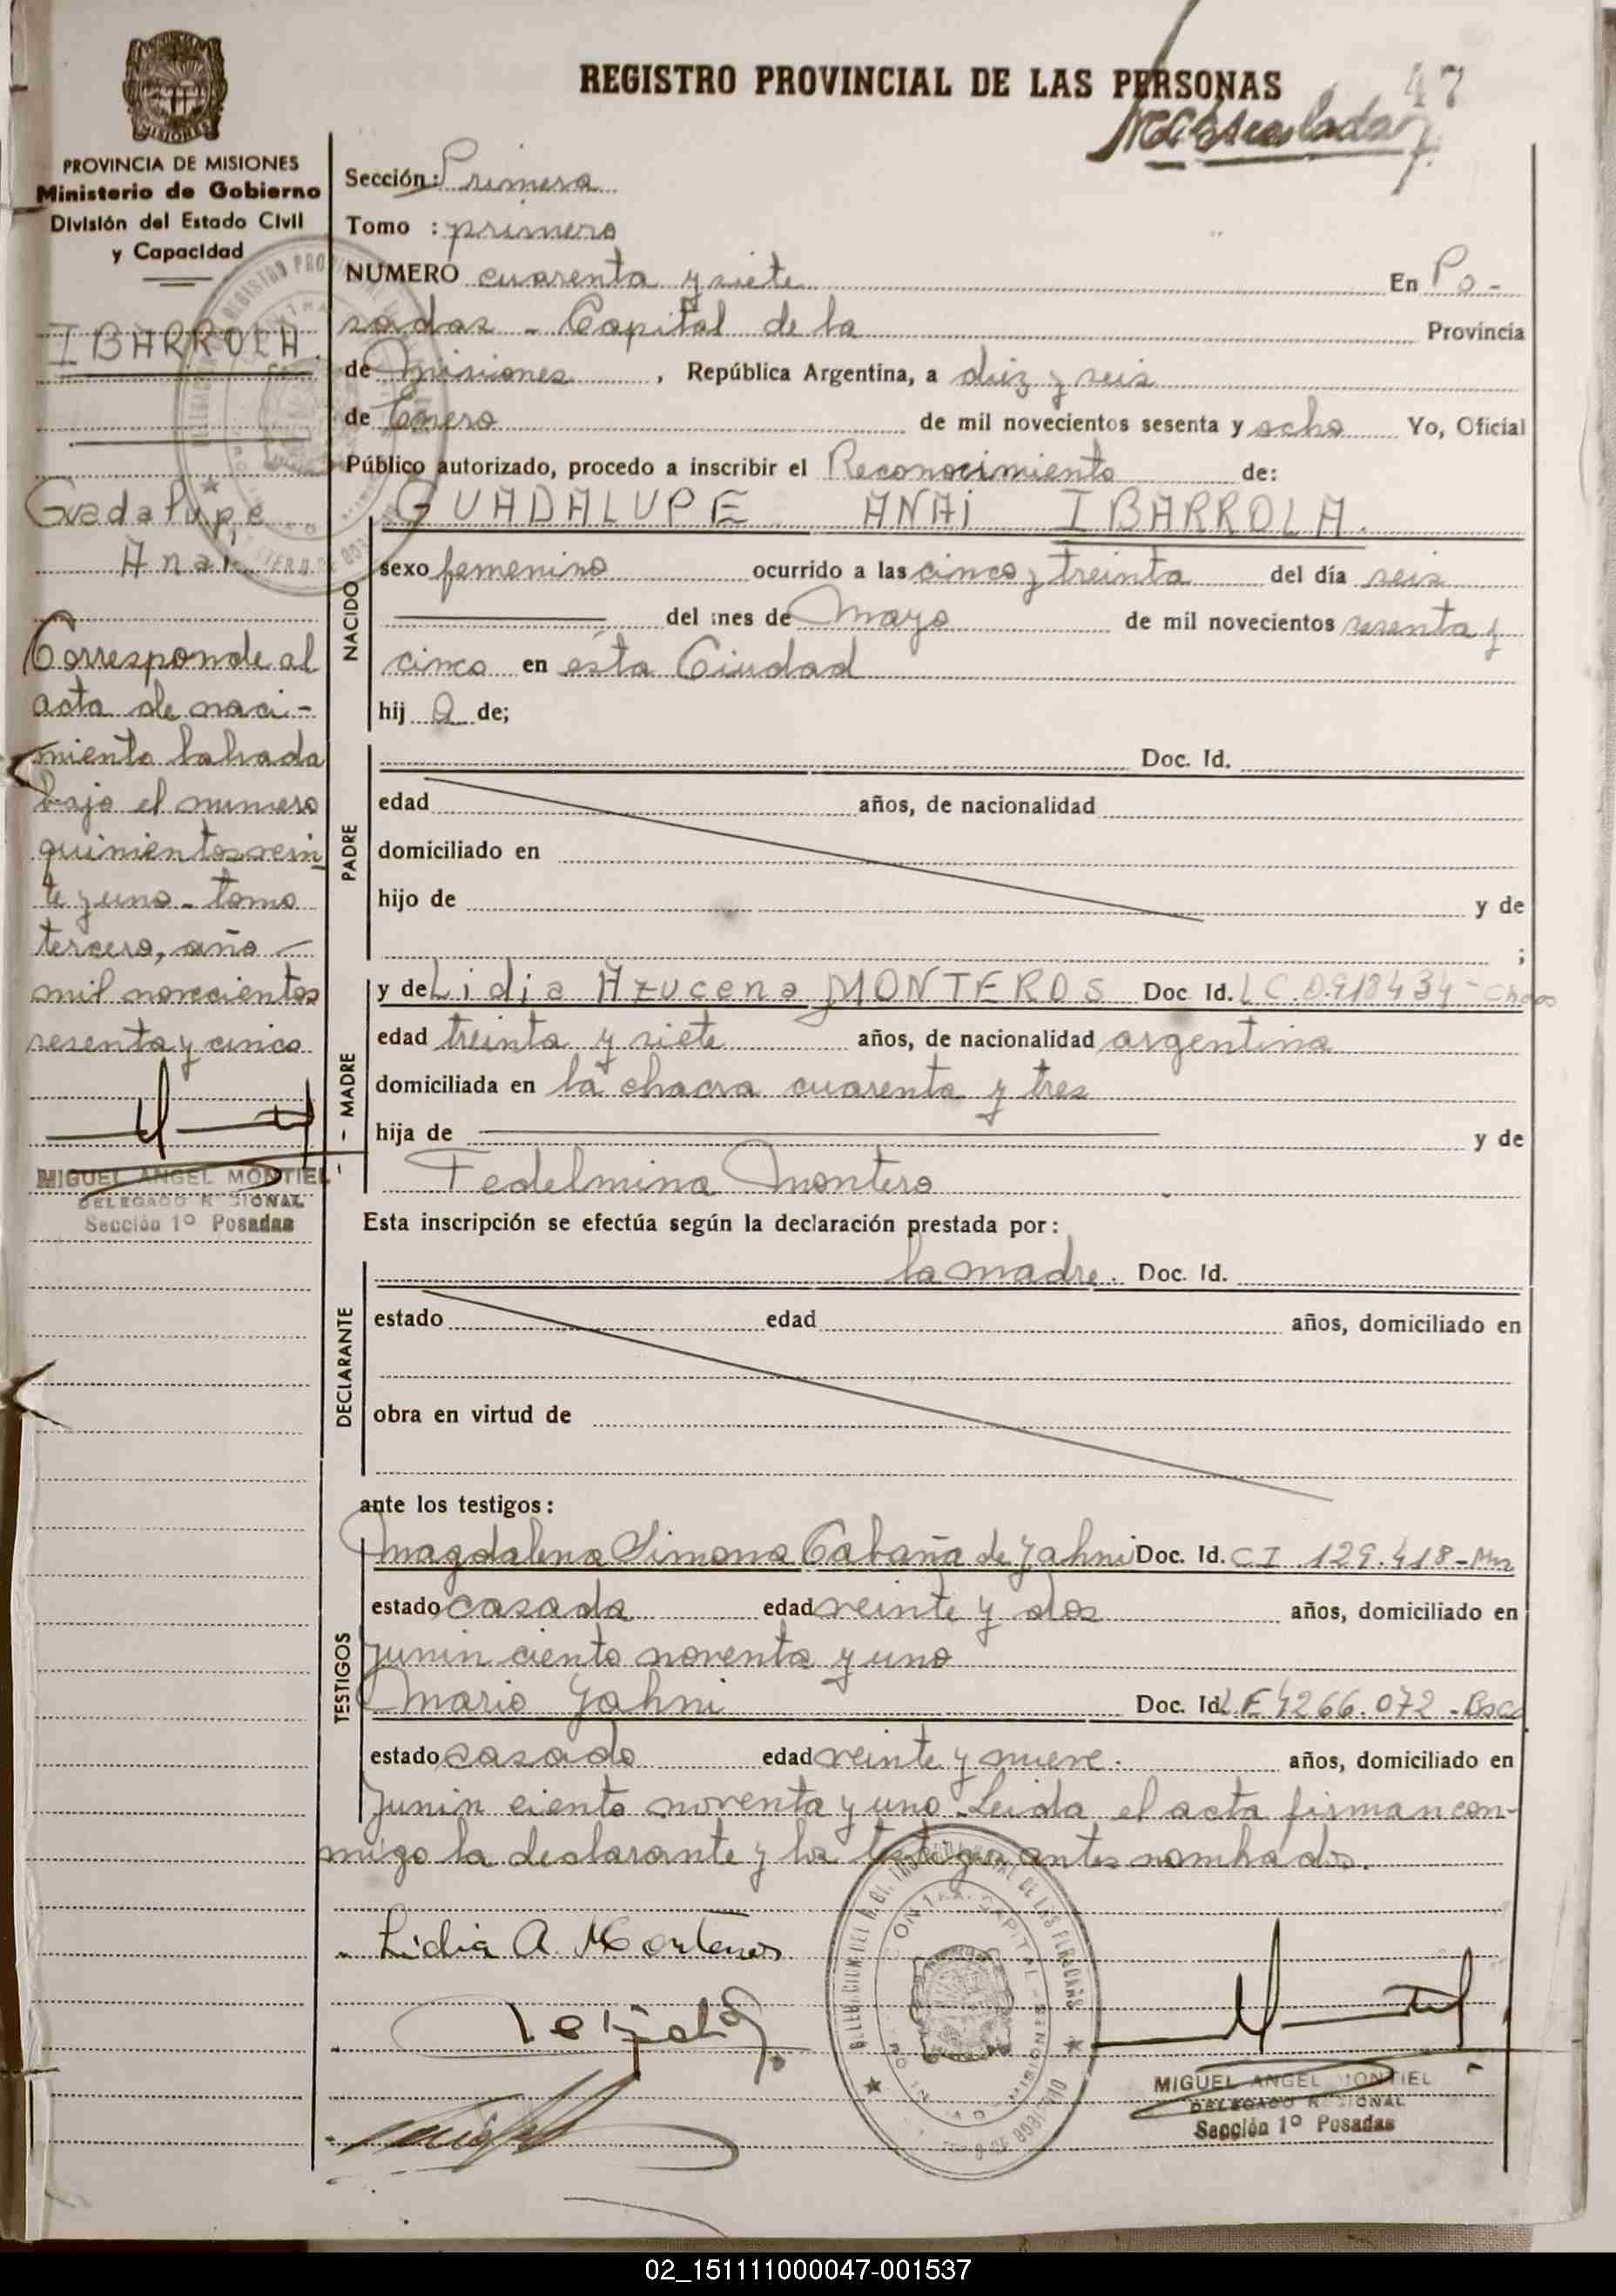 REGISTRO PROVINCIAL DE LAS PERSONAS
47
PROVINCIA DE MISIONES
Ministerio de Gobierno
División del Estado Civil
y Capacidad
IBARROLA
Guadalupe
Anai
Corresponde al
acta de naci-
miento labrada
bajo el numero
quinientos vein
te y uno - tomo
tercero, año
mil novecientos
sesenta y cinco
MIGUEL ANGEL MONTIEL
DELEGADO REGIONAL
Sección 1º Posadas
Sección: Primera
Tomo : primero
NUMERO cuarenta y siete En Po-
sadas - Capital de la Provincia
de Misiones, República Argentina, a diez y seis
de Enero de mil novecientos sesenta y ocho Yo, Oficial
Público autorizado, procedo a inscribir el Reconocimiento de:
NACIDO
GUADALUPE ANAI IBARROLA.
sexo femenino ocurrido a las cinco y treinta del día seis
del mes de Mayo de mil novecientos sesenta y
cinco en esta Ciudad
hij a de;
PADRE
Doc. Id.
edad años, de nacionalidad
domiciliado en
hijo de y de
;
- MADRE -
y de Lidia Azucena MONTEROS Doc Id. L C. 0.918434 - Chaco
edad treinta y siete años, de nacionalidad argentina
domiciliada en la chacra cuarenta y tres
hija de y de
Fedelmina Montero
Esta inscripción se efectúa según la declaración prestada por:
DECLARANTE
la madre. Doc. Id.
estado edad años, domiciliado en
obra en virtud de
ante los testigos:
TESTIGOS
Magdalena Simona Cabaña de Jahni Doc. Id. C I 129.418 - Mns
estado casada edad veinte y dos años, domiciliado en
Junin ciento noventa y uno
Mario Jahni Doc. Id. L E 4266.072 -
estado casado edad veinte y nueve. años, domiciliado en
Junin ciento noventa y uno - Leida el acta firman con-
migo la declarante y los testigos antes nombrados.
Lidia A. Monteros
MIGUEL ANGEL MONTIEL
DELEGADO REGIONAL
Sección 1º Posadas
02_151111000047-001537